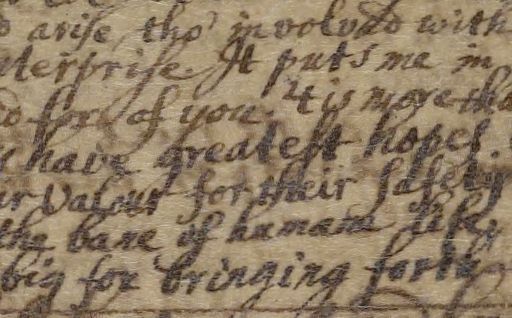 arise, tho' involv'd with
terprise. It puts me in
for of you. 'tis more tha
have greatest hopes.
ur Valour for their safety
the bane of humane life,
big for bringing forth